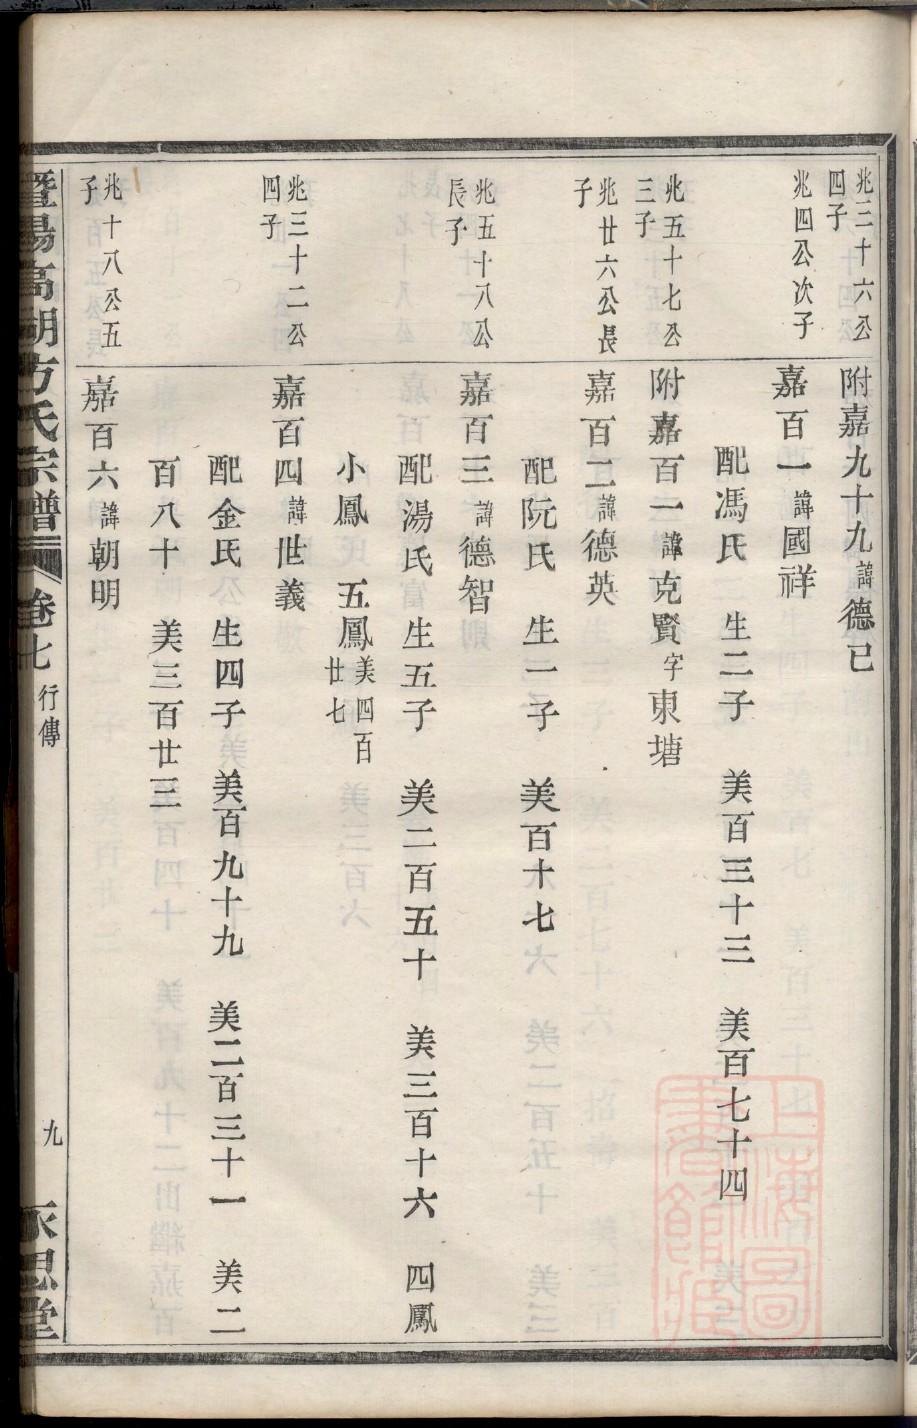 兆三十六公
四子
附嘉九十九諱德已
兆四公次子
嘉百一諱國祥
配馮氏　生二子　美百三十三　美百七十四
兆五十七公
三子
附嘉百一諱克賢字東塘
兆廿六公長
子
嘉百二諱德英
配阮氏　生一子　美百十七
兆五十八公
長子
嘉百三諱德智
配湯氏　生五子　美二百五十　美三百十六　四鳳
小鳳　五鳳美四百
廿七
兆三十二公
四子
嘉百四諱世義
配金氏　生四子　美百九十九　美二百三十一　美二
百八十　美三百廿三
兆十八公五
子
嘉百六諱朝明
暨陽高湖方氏宗譜　卷七　行傳　九　永思堂
上海圖書館藏